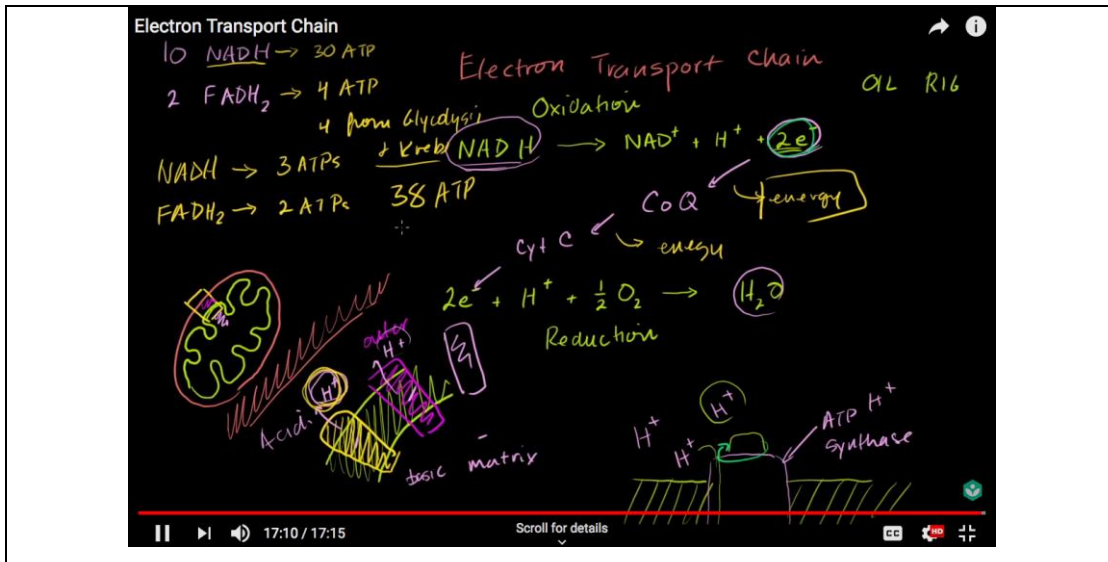 Electron Transport Chain
10 NADH → 30 ATP
2 FADH₂ → 4 ATP
4 from Glycolysis
+ Kreb
NADH → 3 ATPs
FADH₂ → 2 ATPs
38 ATP
Electron Transport Chain
OIL RIG
Oxidation
NADH → NAD⁺ + H⁺ + 2e⁻
energy
CoQ
energy
Cyt C
2e⁻ + H⁺ + ½ O₂ → H₂O
Reduction
outer
H⁺
H⁺
Acidi
basic matrix
H⁺
H⁺
H⁺
ATP H⁺
Synthase
17:10 / 17:15
Scroll for details
CC
HD